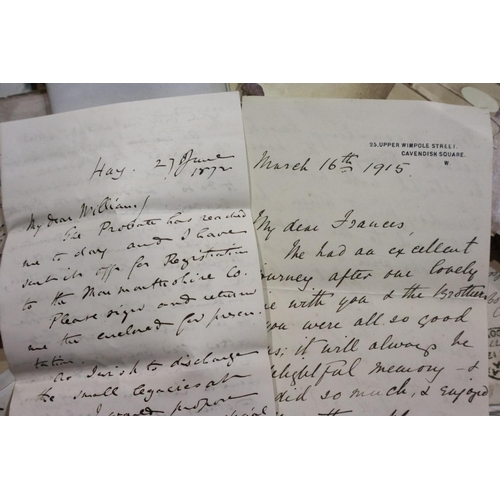 Hay. 27 June
1872
My dear William,
The Probate has reached
me to day and I have
sent it off for Registration
to the Monmouthshire Co.
Please sign and return
me the enclosed for presen-
tation.
As I wish to discharge
the small legacies at
I would propose
25, UPPER WIMPOLE STREET.
CAVENDISH SQUARE.
W.
March 16th 1915.
My dear Frances,
We had an excellent
journey after our lovely
with you & the Brothers
you were all so good
us; it will always be
delightful memory - &
did so much, & enjoyed